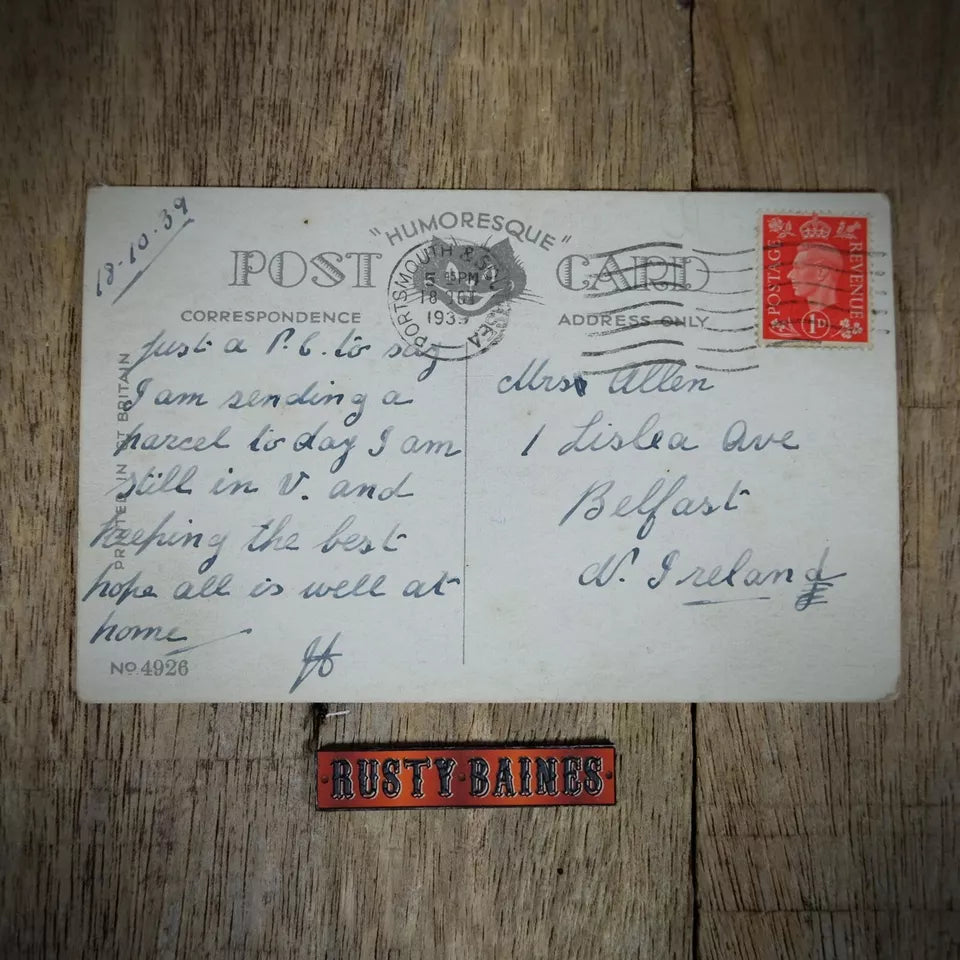 18-10.39
"HUMORESQUE"
POST CARD
CORRESPONDENCE
ADDRESS ONLY
PORTSMOUTH & SOUTHSEA
5 15 PM
18 OCT
1939
POSTAGE REVENUE
1D
PRINTED IN GT BRITAIN
Just a P.C. to say
I am sending a
parcel to day I am
still in V. and
keeping the best
hope all is well at
home
Mrs Allen
1 Lislea Ave
Belfast
N. Ireland
No. 4926
RUSTY·BAINES